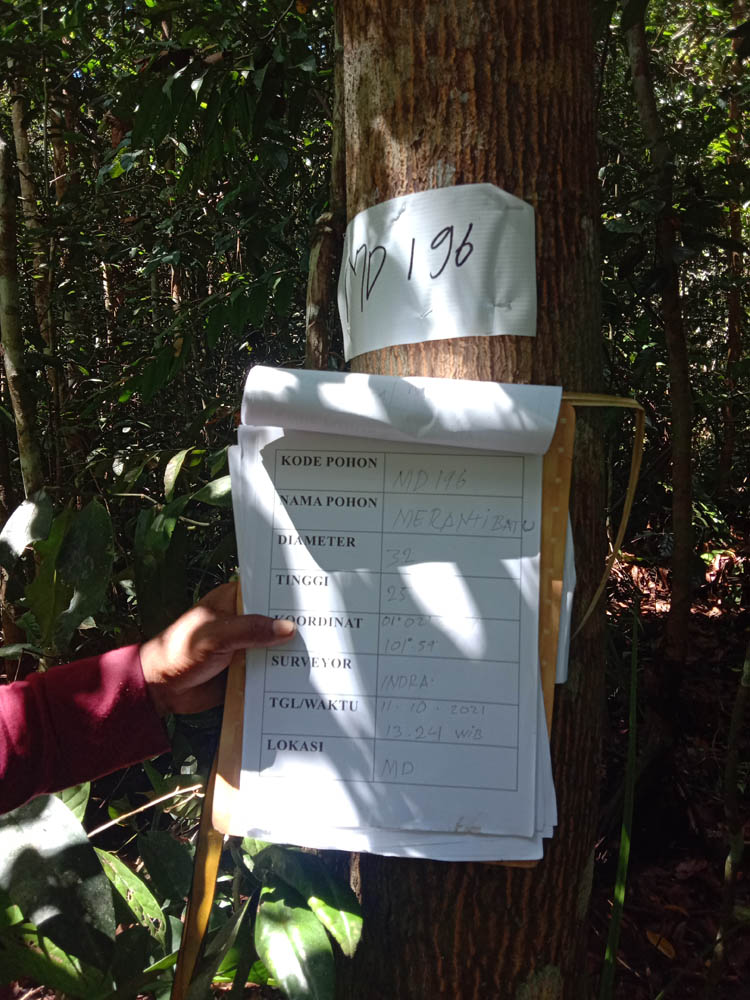 MD 196
KODE POHON MD 196
NAMA POHON MERANTI BATU
DIAMETER 32
TINGGI 25
KOORDINAT 01° 02'
101° 59
SURVEYOR INDRA.
TGL/WAKTU 11 - 10 - 2021
13.24 WIB
LOKASI MD